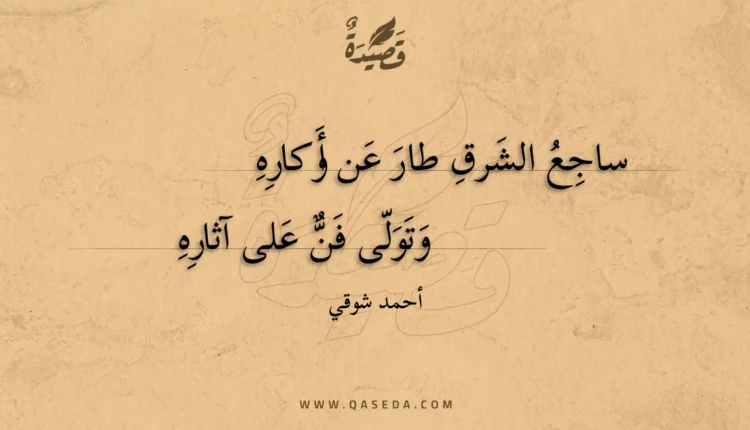 قَصِيْدَةٌ
ساجِعُ الشَرقِ طارَ عَن أَوكارِهِ
وَتَوَلّى فَنٌّ عَلى آثارِهِ
أحمد شوقي
WWW.QASEDA.COM